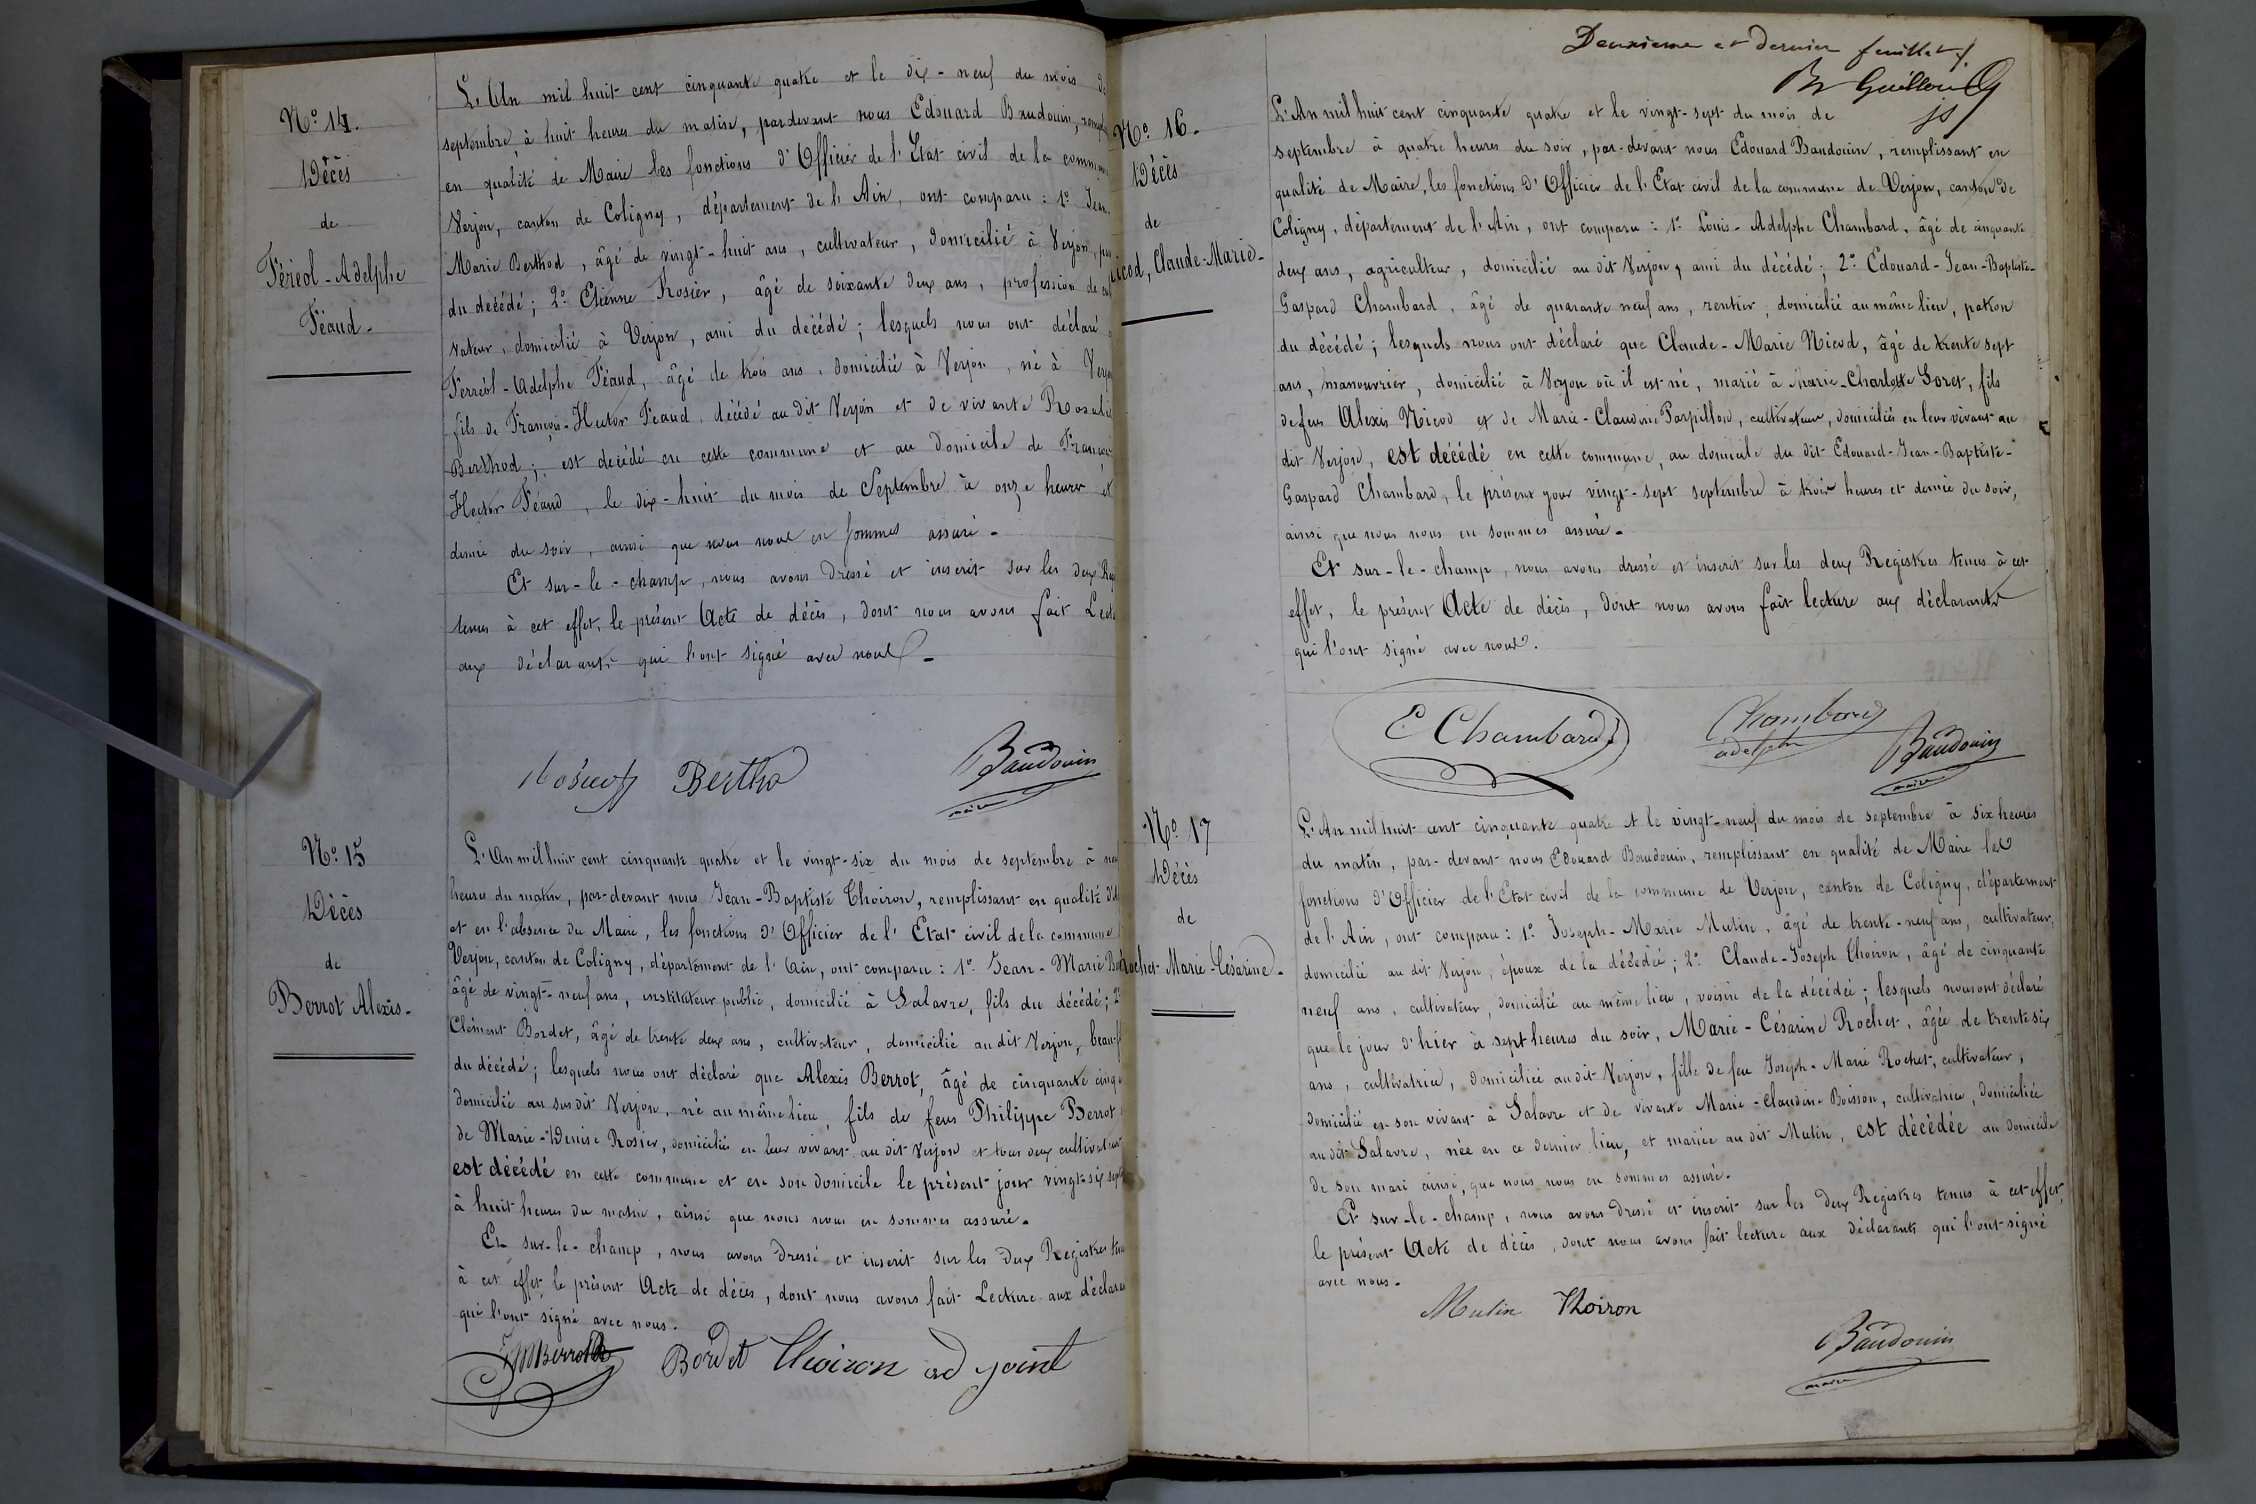 N.º 14.
Décès
de
Féréol-Adelphe
Féaud.
L'An mil huit cent cinquante quatre et le dix-neuf du mois de
septembre, à huit heures du matin, pardevant nous Edouard Baudouin,
en qualité de Maire les fonctions d'Officier de l'Etat civil de la
Verjon, canton de Coligny, département de l'Ain, ont comparu: 1º. Jean
Marie Berthod, âgé de vingt-huit ans, cultivateur, domicilié à Verjon,
du décédé; 2º Etienne Rosier, âgé de soixante deux ans, profession de
vateur, domicilié à Verjon, ami du décédé; lesquels nous ont déclaré
Ferréol-Adelphe Féaud, âgé de trois ans, domicilié à Verjon, né à
fils de François-Hector Féaud, décédé au dit Verjon et de vivante Rosalie
Berthod; est décédé en cette commune et au domicile de
Hector Féaud, le dix-huit du mois de Septembre à onze heures et
demie du soir, ainsi que nous nous en sommes assuré.
Et sur-le-champ, nous avons dressé et inscrit sur les deux
tenus à cet effet, le présent Acte de décès, dont nous avons fait
aux déclarants qui l'ont signé avec nous.
Bertho Baudouin
maire
Nº. 15
Décès
de
Berrot Alexis.
L'An mil huit cent cinquante quatre et le vingt-six du mois de septembre à
heures du matin, par-devant nous Jean-Baptiste Thoiron, remplissant en qualité
et en l'absence du Maire, les fonctions d'Officier de l'Etat civil de la commune
Verjon, canton de Coligny, département de l'Ain, ont comparu: 1º. Jean-Marie
âgé de vingt-neuf ans, instituteur public, domicilié à Salavre, fils du décédé; 2º
Clément Bordet, âgé de trente deux ans, cultivateur, domicilié au dit Verjon,
du décédé; lesquels nous ont déclaré que Alexis Berrot, âgé de cinquante cinq
domicilié au susdit Verjon, né au même lieu, fils de feus Philippe Berrot
de Marie-Denise Rosier, domiciliés en leur vivant au dit Verjon et tous deux cultivateurs
est décédé en cette commune et en son domicile le présent jour vingt-six
à huit heures du matin, ainsi que nous nous en sommes assuré.
Et sur-le-champ, nous avons dressé et inscrit sur les deux Registres
à cet effet le présent Acte de décès, dont nous avons fait Lecture aux
qui l'ont signé avec nous.
JMBerrot Bordet Thoiron adjoint
Deuxième et dernier feuillet
Br Guillon
Nº. 16.
Décès
de
icod, Claude-Marie.
L'An mil huit cent cinquante quatre et le vingt-sept du mois de
septembre à quatre heures du soir, par-devant nous Edouard Baudouin, remplissant en
qualité de Maire, les fonctions d'Officier de l'Etat civil de la commune de Verjon, canton de
Coligny, département de l'Ain, ont comparu: 1º Louis-Adelphe Chambard, âgé de cinquante
deux ans, agriculteur, domicilié au dit Verjon, ami du décédé; 2º. Edouard-Jean-Baptiste-
Gaspard Chambard, âgé de quarante neuf ans, rentier, domicilié au même lieu, patron
du décédé; lesquels nous ont déclaré que Claude-Marie Nicod, âgé de trente sept
ans, manouvrier, domicilié à Verjon où il est né, marié à Marie-Charlotte Goret, fils
de feus Alexis Nicod et de Marie-Claudine Parpillon, cultivateurs, domiciliés en leur vivant au
dit Verjon, est décédé en cette commune, au domicile du dit Edouard-Jean-Baptiste-
Gaspard Chambard, le présent jour vingt-sept septembre à trois heures et demie du soir,
ainsi que nous nous en sommes assuré.
Et sur-le-champ, nous avons dressé et inscrit sur les deux Registres tenus à cet
effet, le présent Acte de décès, dont nous avons fait lecture aux déclarants
qui l'ont signé avec nous.
E Chambard Chambard
adelphe Baudouin
maire
Nº. 17
Décès
de
Rochet Marie-Césarine.
L'An mil huit cent cinquante quatre et le vingt-neuf du mois de septembre à six heures
du matin, par-devant nous Edouard Baudouin, remplissant en qualité de Maire les
fonctions d'Officier de l'Etat civil de la commune de Verjon, canton de Coligny, département
de l'Ain, ont comparu: 1º. Joseph-Marie Mutin, âgé de trente-neuf ans, cultivateur,
domicilié au dit Verjon, époux de la décédée; 2º. Claude-Joseph Thoiron, âgé de cinquante
neuf ans, cultivateur, domicilié au même lieu, voisin de la décédée; lesquels nous ont déclaré
que le jour d'hier à sept heures du soir, Marie-Césarine Rochet, âgée de trente six
ans, cultivatrice, domiciliée au dit Verjon, fille de feu Joseph-Marie Rochet, cultivateur,
domicilié en son vivant à Salavre et de vivante Marie-Claudine Boisson, cultivatrice, domiciliée
au dit Salavre, née en ce dernier lieu, et mariée au dit Mutin, est décédée au domicile
de son mari ainsi, que nous nous en sommes assuré.
Et sur-le-champ, nous avons dressé et inscrit sur les deux Registres tenus à cet effet,
le présent Acte de décès, dont nous avons fait lecture aux déclarants qui l'ont signé
avec nous.
Mutin Thoiron
Baudouin
maire